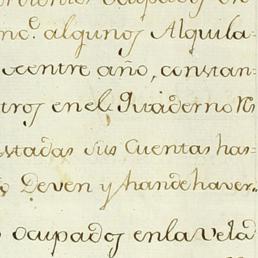 ocupados en
algunos Alquila-
centre año, constan-
tros en el Quaderno Nº
stadas sus Cuentas has-
Deven y han de haver..
ocupados en la vela